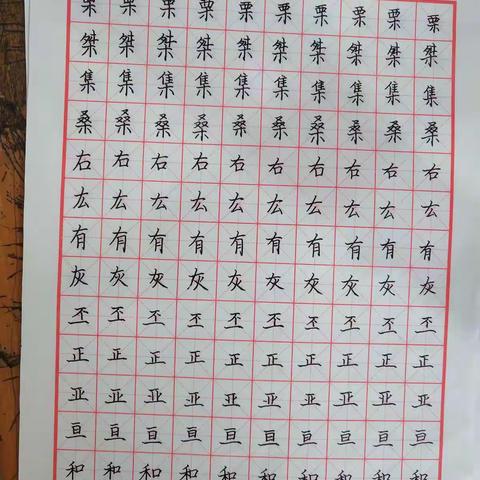 栗栗栗栗栗栗栗栗栗栗
桀桀桀桀桀桀桀桀桀桀
集集集集集集集集集集
桑桑桑桑桑桑桑桑桑桑
右右右右右右右右右右
厷厷厷厷厷厷厷厷厷厷
有有有有有有有有有有
灰灰灰灰灰灰灰灰灰灰
丕丕丕丕丕丕丕丕丕丕
正正正正正正正正正正
亚亚亚亚亚亚亚亚亚亚
亘亘亘亘亘亘亘亘亘亘
和和和和和和和和和和